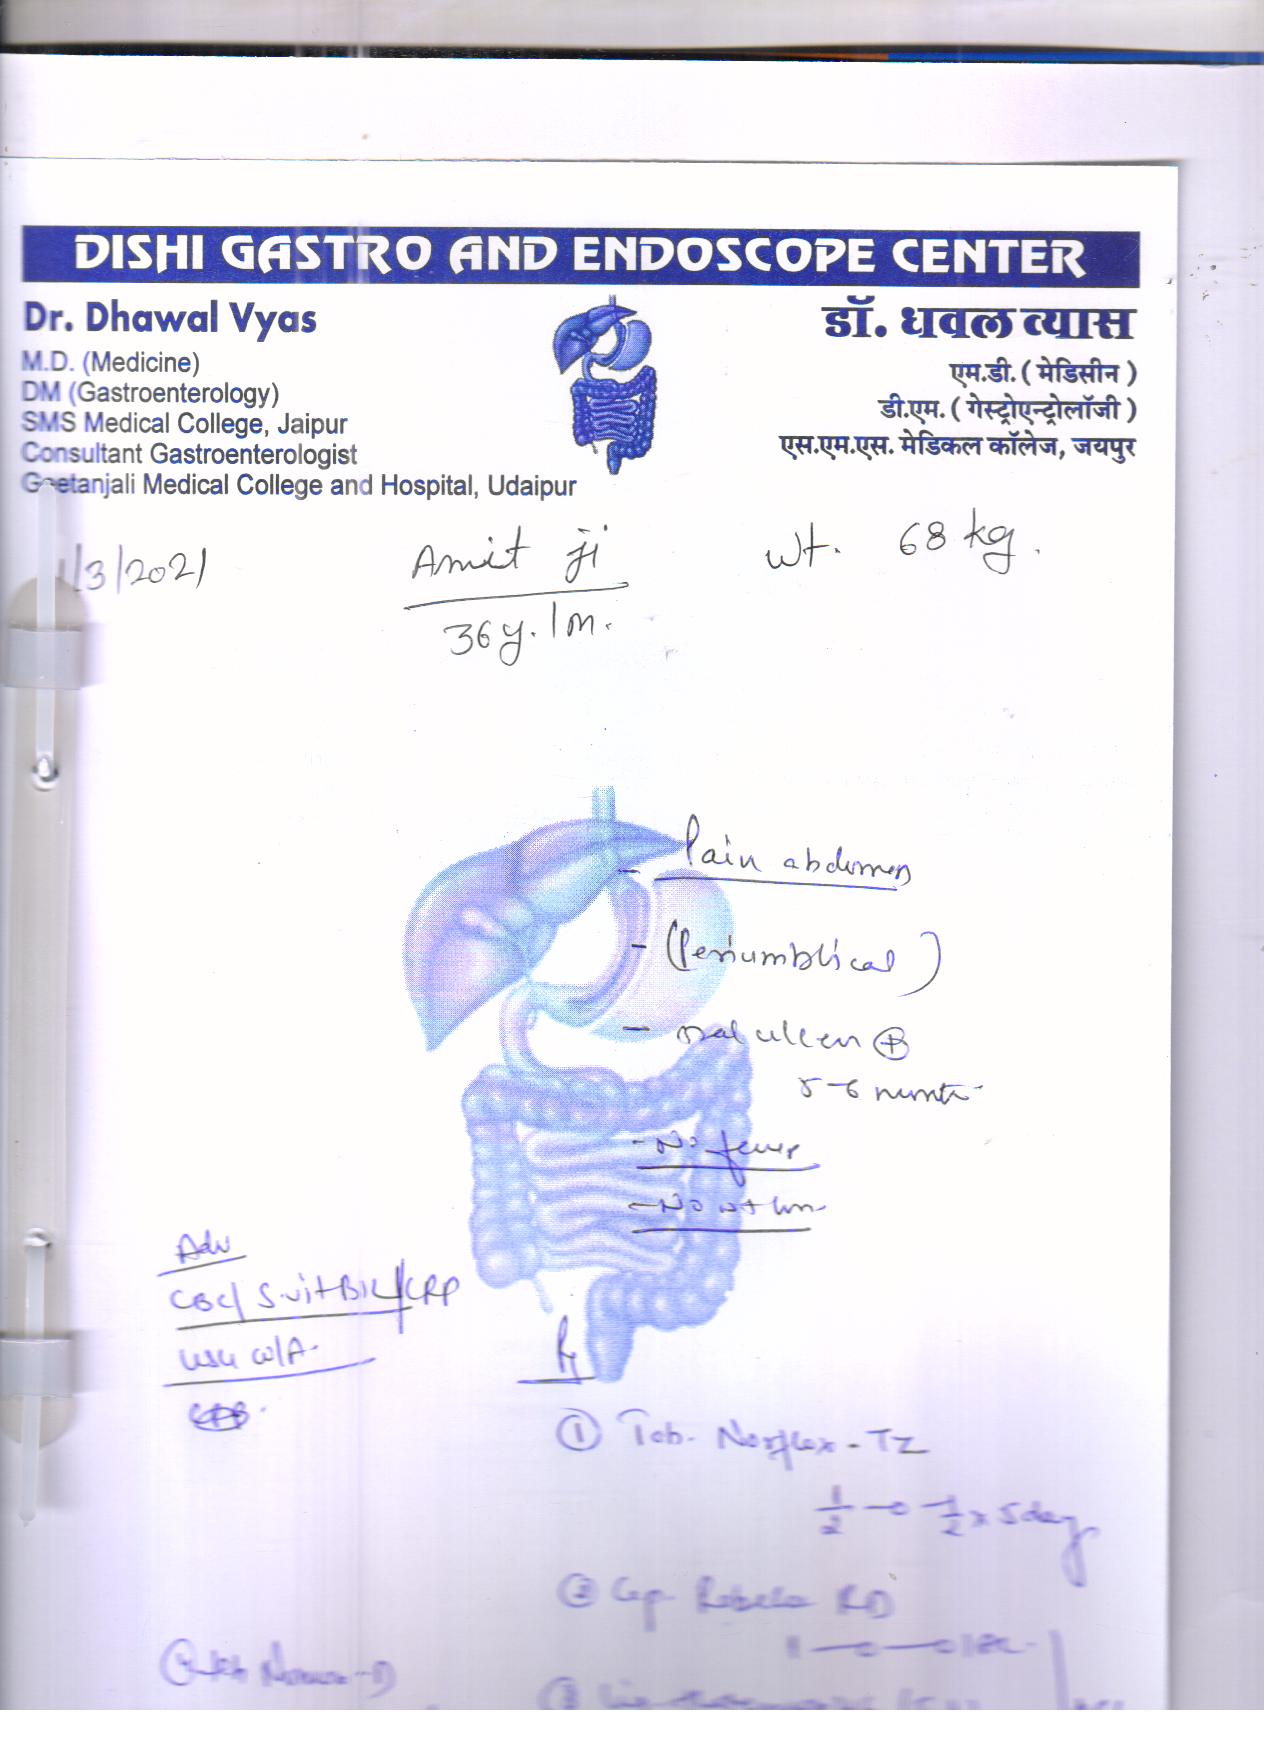 DISHI GASTRO AND ENDOSCOPE CENTER
Dr. Dhawal Vyas
M.D. (Medicine)
DM (Gastroenterology)
SMS Medical College, Jaipur
Consultant Gastroenterologist
Geetanjali Medical College and Hospital, Udaipur
डॉ. धवल व्यास
एम.डी. ( मेडिसीन )
डी.एम. ( गेस्ट्रोएन्ट्रोलॉजी )
एस.एम.एस. मेडिकल कॉलेज, जयपुर
1/3/2021
Amit ji
36y. / m.
wt. 68 kg.
- Pain abdomen
- (Periumblical)
- oral ulcer ⊕
5-6 month
- No fever
- No wt loss
Adv
CBC/ S. vit B12/ CRP
USG W/A.
Rx
① Tab. Norflox - TZ
1/2 - 0 - 1/2 x 5 day
② Cap. RD
1 - 0 - 0
③